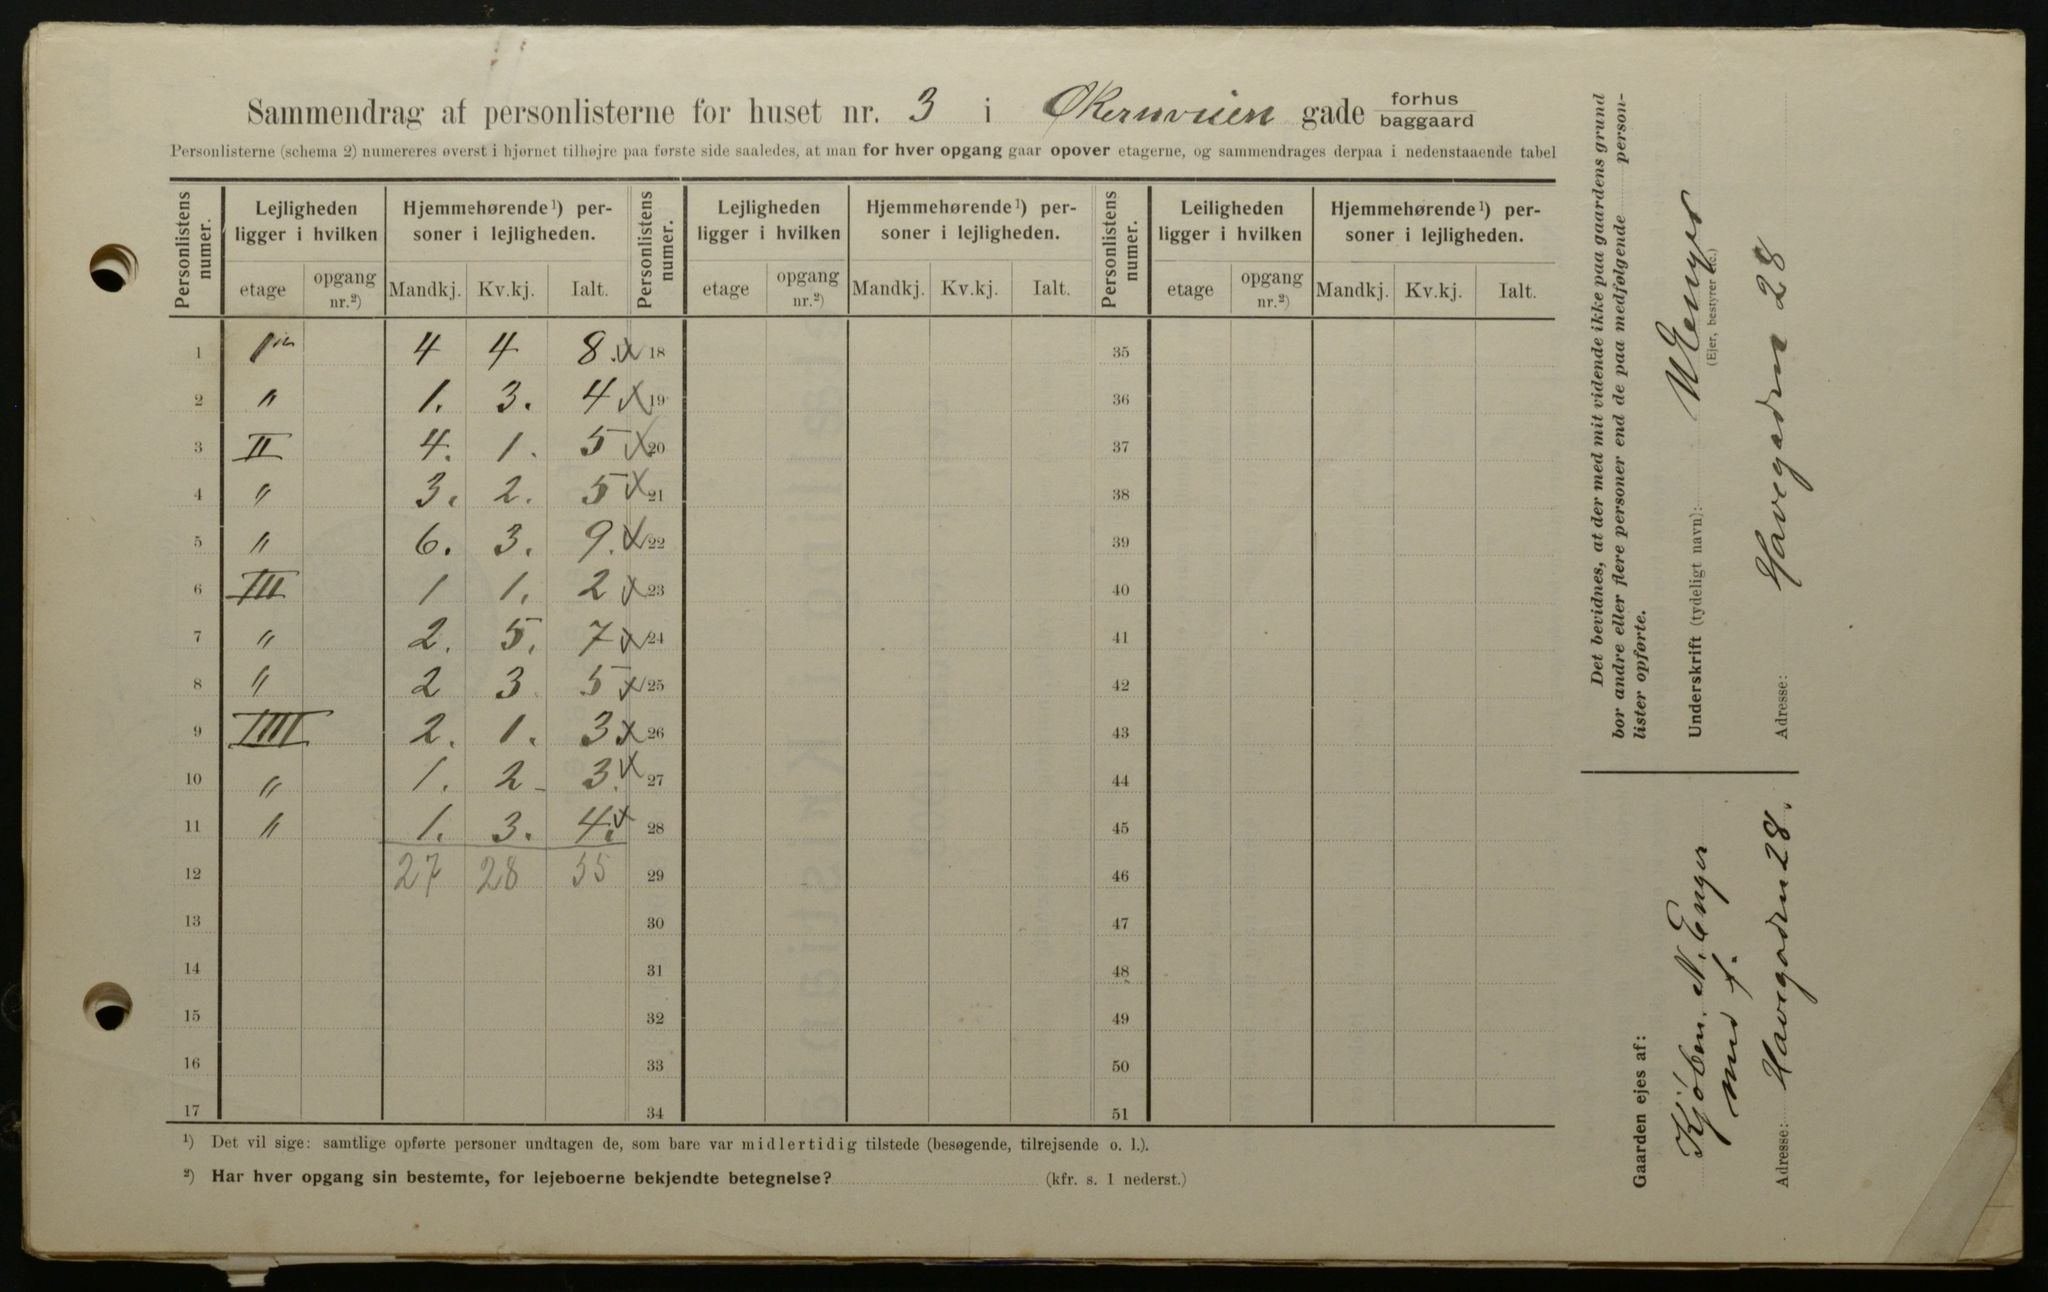 Sammendrag af personlisterne for huset nr. 3 i Økernveien gade forhus baggaard
Personlisterne (schema 2) numereres øverst i hjørnet tilhøjre paa første side saaledes, at man for hver opgang gaar opover etagerne, og sammendrages derpaa i nedenstaaende tabel
Personlistens numer. Lejligheden ligger i hvilken Hjemmehørende¹) per-soner i lejligheden. Personlistens numer. Lejligheden ligger i hvilken Hjemmehørende¹) per-soner i lejligheden. Personlistens numer. Leiligheden ligger i hvilken Hjemmehørende¹) per-soner i lejligheden.
etage opgang nr.²) Mandkj. Kv.kj. Ialt. etage opgang nr.²) Mandkj. Kv.kj. Ialt. etage opgang nr.²) Mandkj. Kv.kj. Ialt.
1 1ste 4 4 8. 18 35
2 " 1. 3. 4 19 36
3 II 4. 1. 5 20 37
4 " 3. 2. 5 21 38
5 " 6. 3. 9. 22 39
6 III 1 1. 2 23 40
7 " 2. 5. 7 24 41
8 " 2 3. 5 25 42
9 IIII 2. 1. 3 26 43
10 " 1. 2 3. 27 44
11 " 1. 3. 4. 28 45
12 27 28 55 29 46
13 30 47
14 31 48
15 32 49
16 33 50
17 34 51
¹) Det vil sige: samtlige opførte personer undtagen de, som bare var midlertidig tilstede (besøgende, tilrejsende o. l.).
²) Har hver opgang sin bestemte, for lejeboerne bekjendte betegnelse? (kfr. s. 1 nederst.)
Det bevidnes, at der med mit vidende ikke paa gaardens grund
bor andre eller flere personer end de paa medfølgende person-
lister opførte.
Underskrift (tydeligt navn): N Enger
(Ejer, bestyrer etc.)
Adresse: Havegaden 28
Gaarden ejes af:
Kjøbm. N. Enger
med f.
Adresse: Havegaden 28.